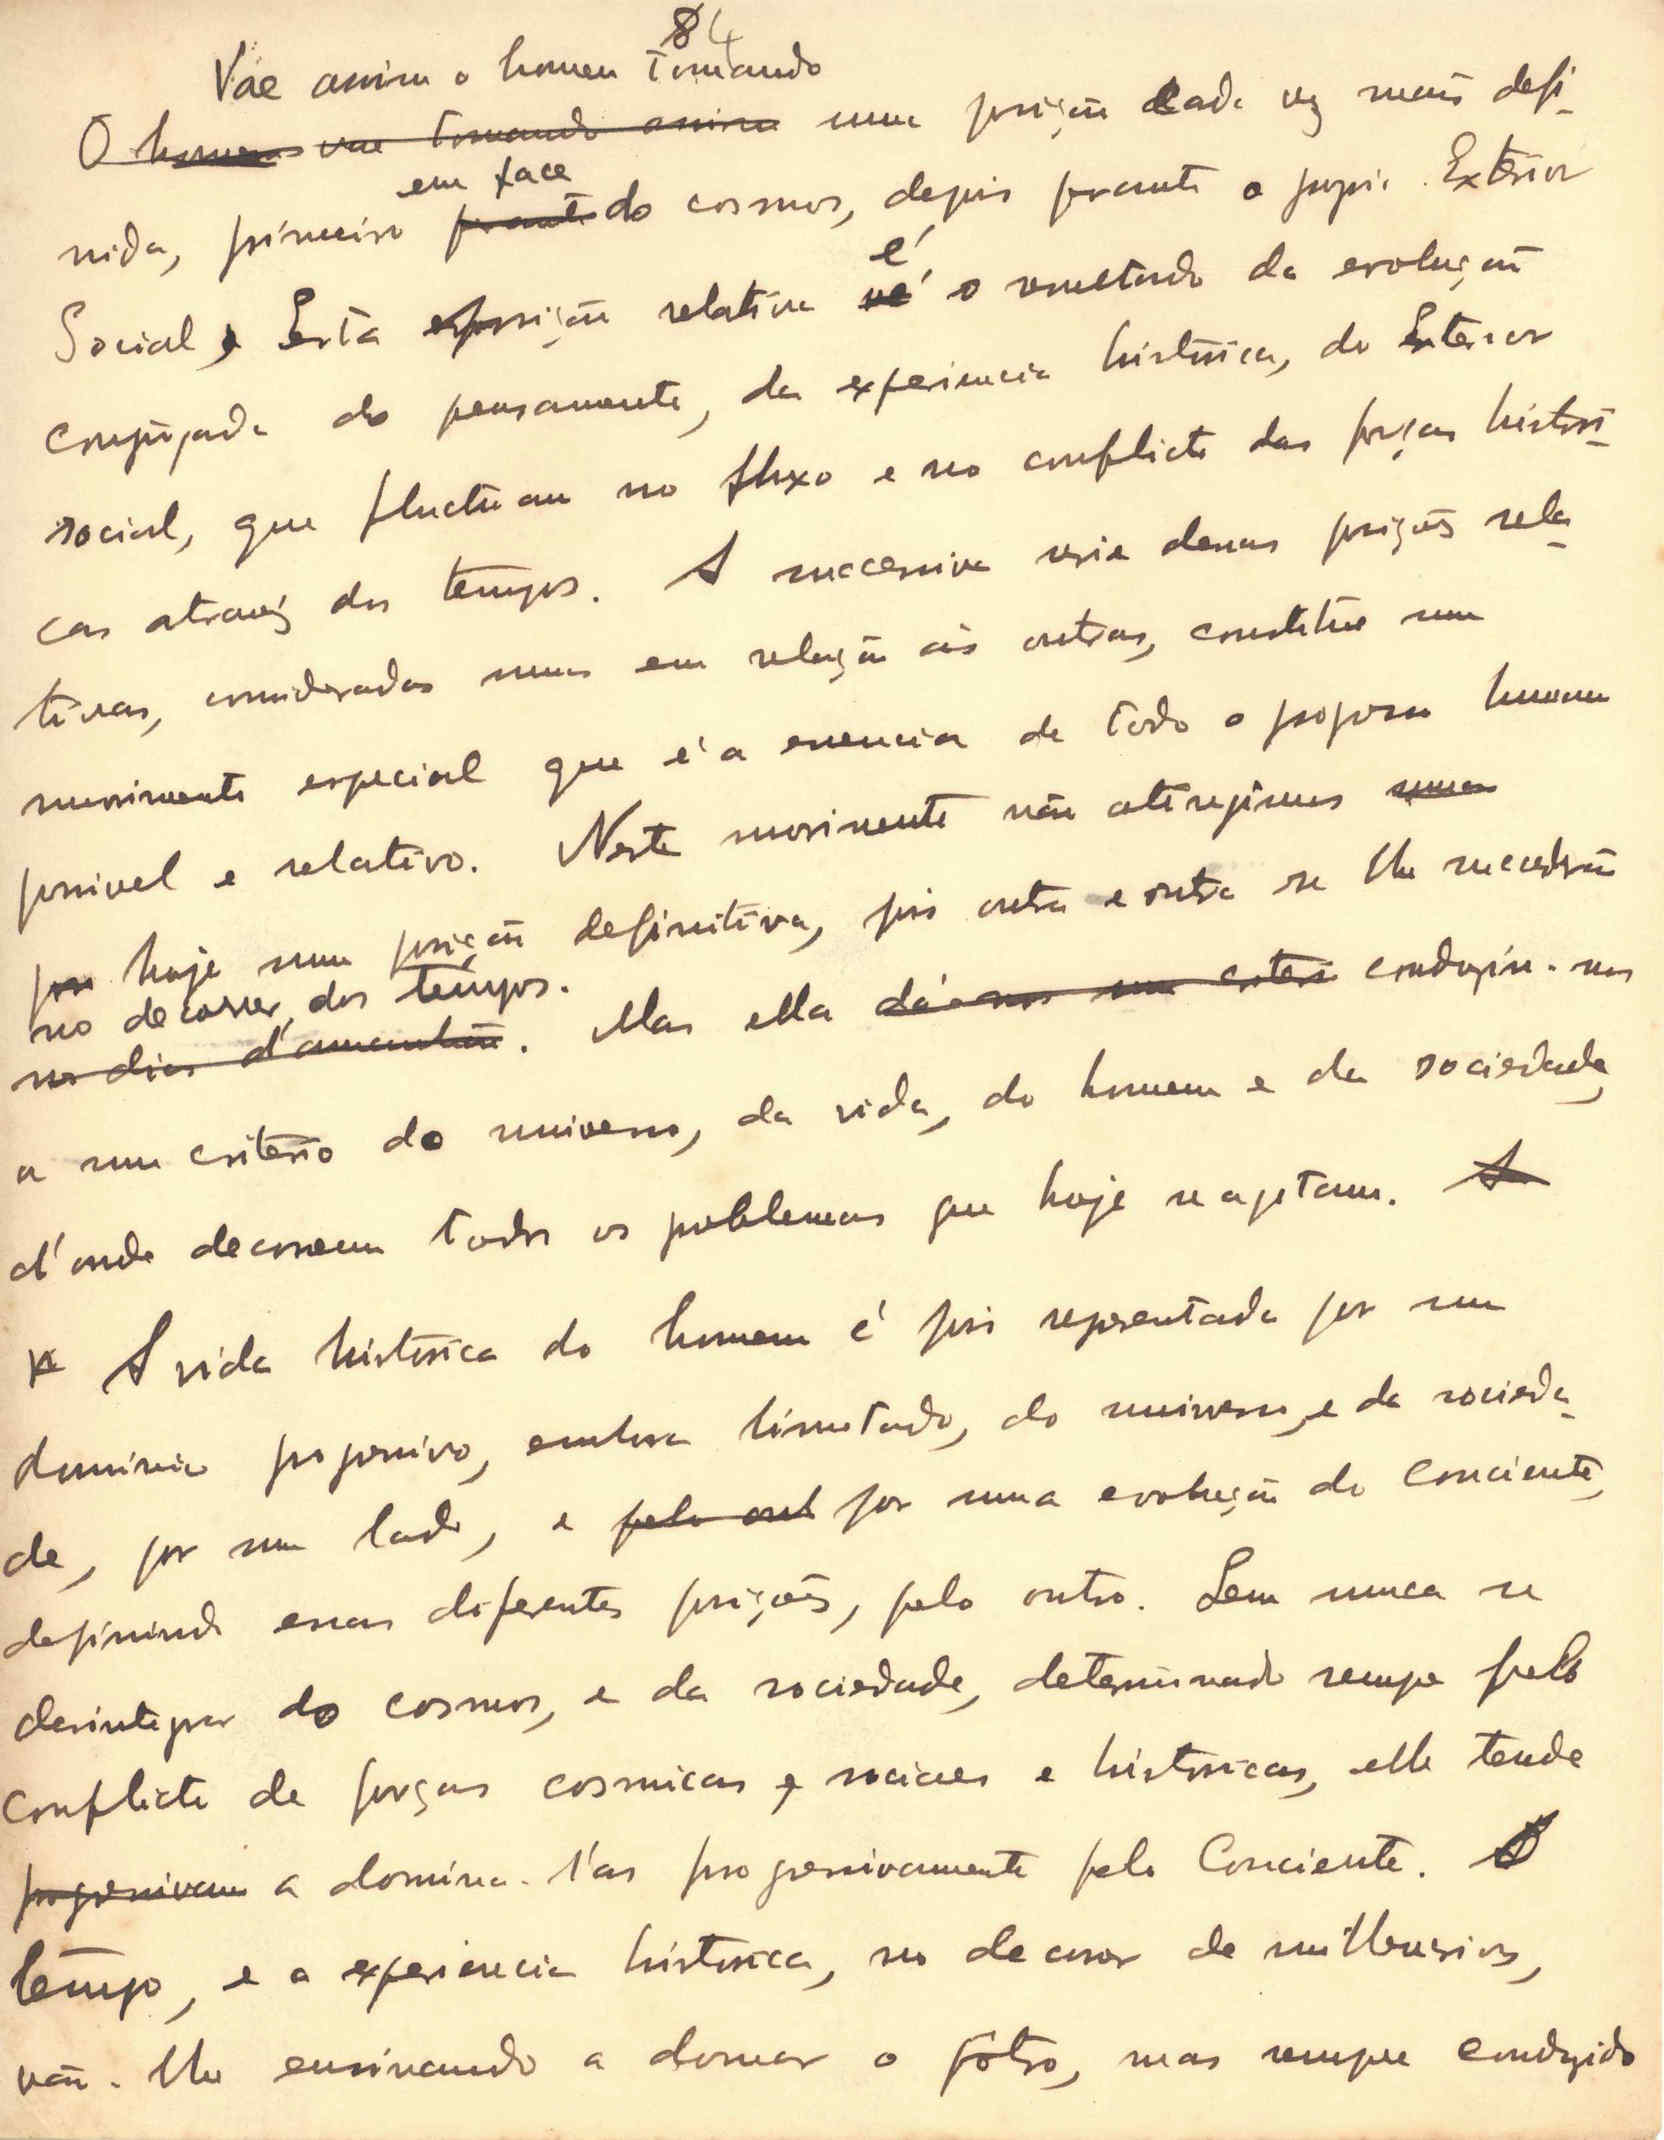 84
Vae assim o homem tomando
O homem vae tomando assim uma posição cada vez mais defi-
em face
nida, primeiro perante do cosmos, depois perante o proprio Exterior
é
Social, Esta posição relativa é o resultado da evolução
conjugada do pensamento, da experiencia histórica, do Exterior
social, que fluctuam no fluxo e no conflicto das forças histori-
cas através dos tempos. A successiva serie dessas posições rela-
tivas, consideradas umas em relação ás outras, constitue um
movimento especial que é a essencia de todo o progresso humano
possivel e relativo. Neste movimento não atingimos uma
por hoje uma posição definitiva, pois outra e outra se lhe succederão
no decorrer dos tempos.
nos dias d'amanhã. Mas ella dá-nos um criterio conduziu-nos
a um critério do universo, da vida, do homem e da sociedade,
d'onde decorrem todos os problemas que hoje se agitam. A
A vida histórica do homem é pois representada por um
dominio progressivo, embora limitado, do universo, e da socieda-
de, por um lado, e pelo out por uma evolução do Conciente,
definindo essas diferentes posições, pelo outro. Sem nunca se
desintegrar do cosmos, e da sociedade, determinado sempre pelo
conflicto de forças cosmicas e sociaes e históricas, elle tende
progressivam a domina-l'as progressivamente pelo Conciente. O
tempo, e a experiencia histórica, no decorrer de millenarios,
vão-lhe ensinando a domar o potro, mas sempre conduzido